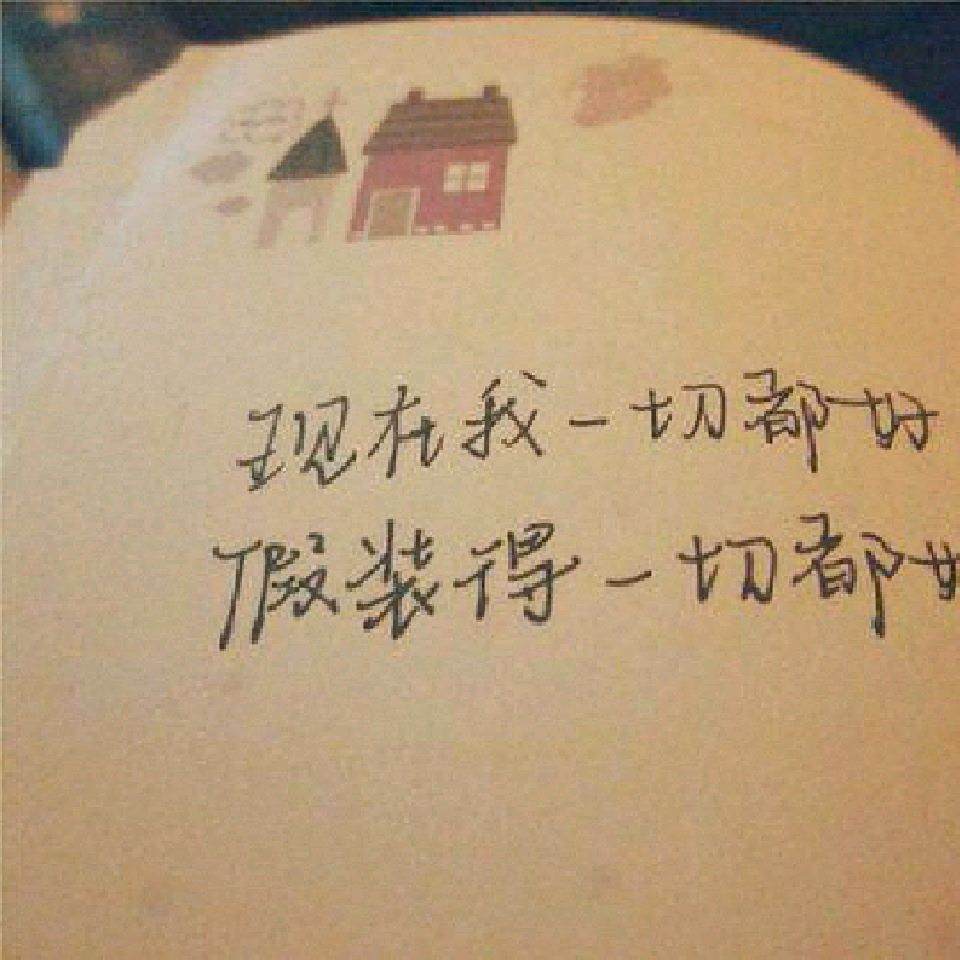 现在我一切都好
假装得一切都好